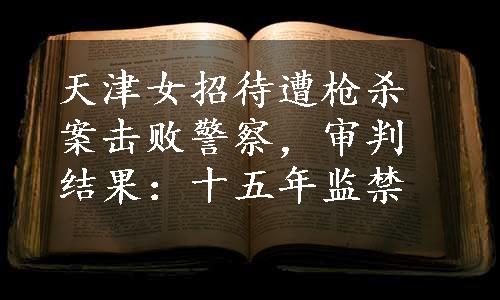 天津女招待遭枪杀
案击败警察，审判
结果：十五年监禁